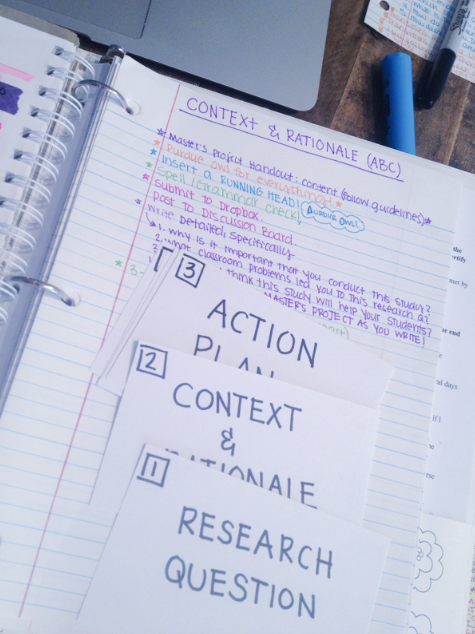 CONTEXT & RATIONALE (ABC)
Master's Project Handout: Content (follow guidelines)
Purdue owl for everything!
Insert a RUNNING HEAD!
Spell/Grammar check, PURDUE OWL!
Submit to Dropbox.
Post to Discussion Board.
Write detailed; specifically.
1. Why is it important that you conduct this study?
2. What classroom problems led you to this research Q?
think this study will help your students?
MASTER'S PROJECT AS YOU WRITE!
3
ACTION
PLAN
2
CONTEXT
&
RATIONALE
1
RESEARCH
QUESTION